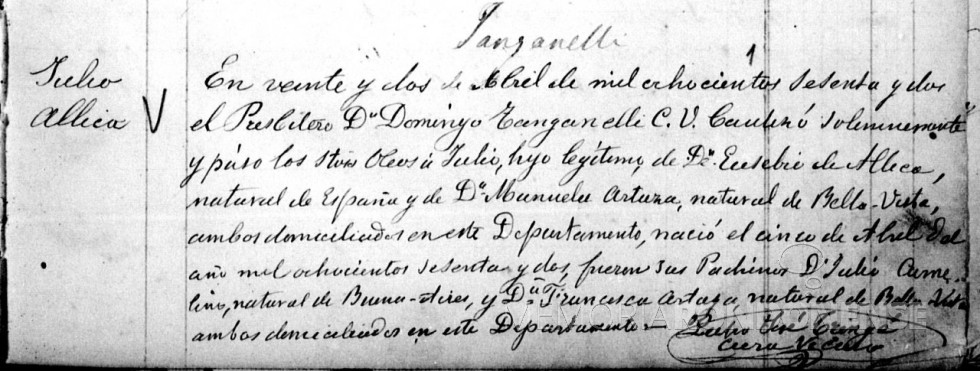 Tanganelli
Julio
Allica
En veinte y dos de Abril de mil ochocientos sesenta y dos
el Presbitero Dn. Domingo Tanganelli C. V. Bautizó solemnemente
y puso los Stos Oleos á Julio, hijo legítimo, de Dn. Eusebio de Allica,
natural de España y de Da. Manuela Artaza, natural de Bella-Vista,
ambos domiciliados en este Departamento, nació el cinco de Abril del
año mil ochocientos sesenta y dos, fueron sus Padrinos Dn Julio
natural de Buenos-Aires, y Da. Francisca Artaza, natural de Bella-Vista
ambos domiciliados en este Departamento
José
Cura Vicario